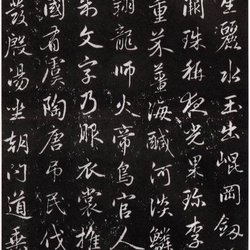 生麗水玉出崐岡劔
闕珠稱夜光果珍李
重芥薑海鹹河淡鱗
翔龍師火帝鳥官人
制文字乃服衣裳推
國有虞陶唐吊民伐
發殷湯坐朝問道垂